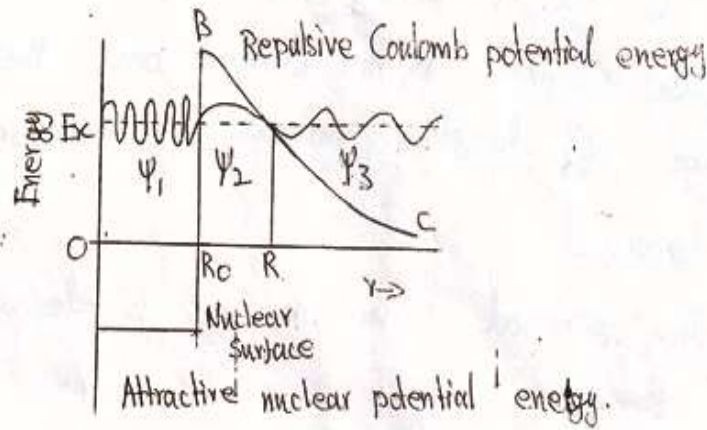 B
Repulsive Coulomb potential energy
Energy
Eα
ψ₁
ψ₂
ψ₃
C
O
R₀
R
r→
Nuclear
Surface
Attractive nuclear potential energy.